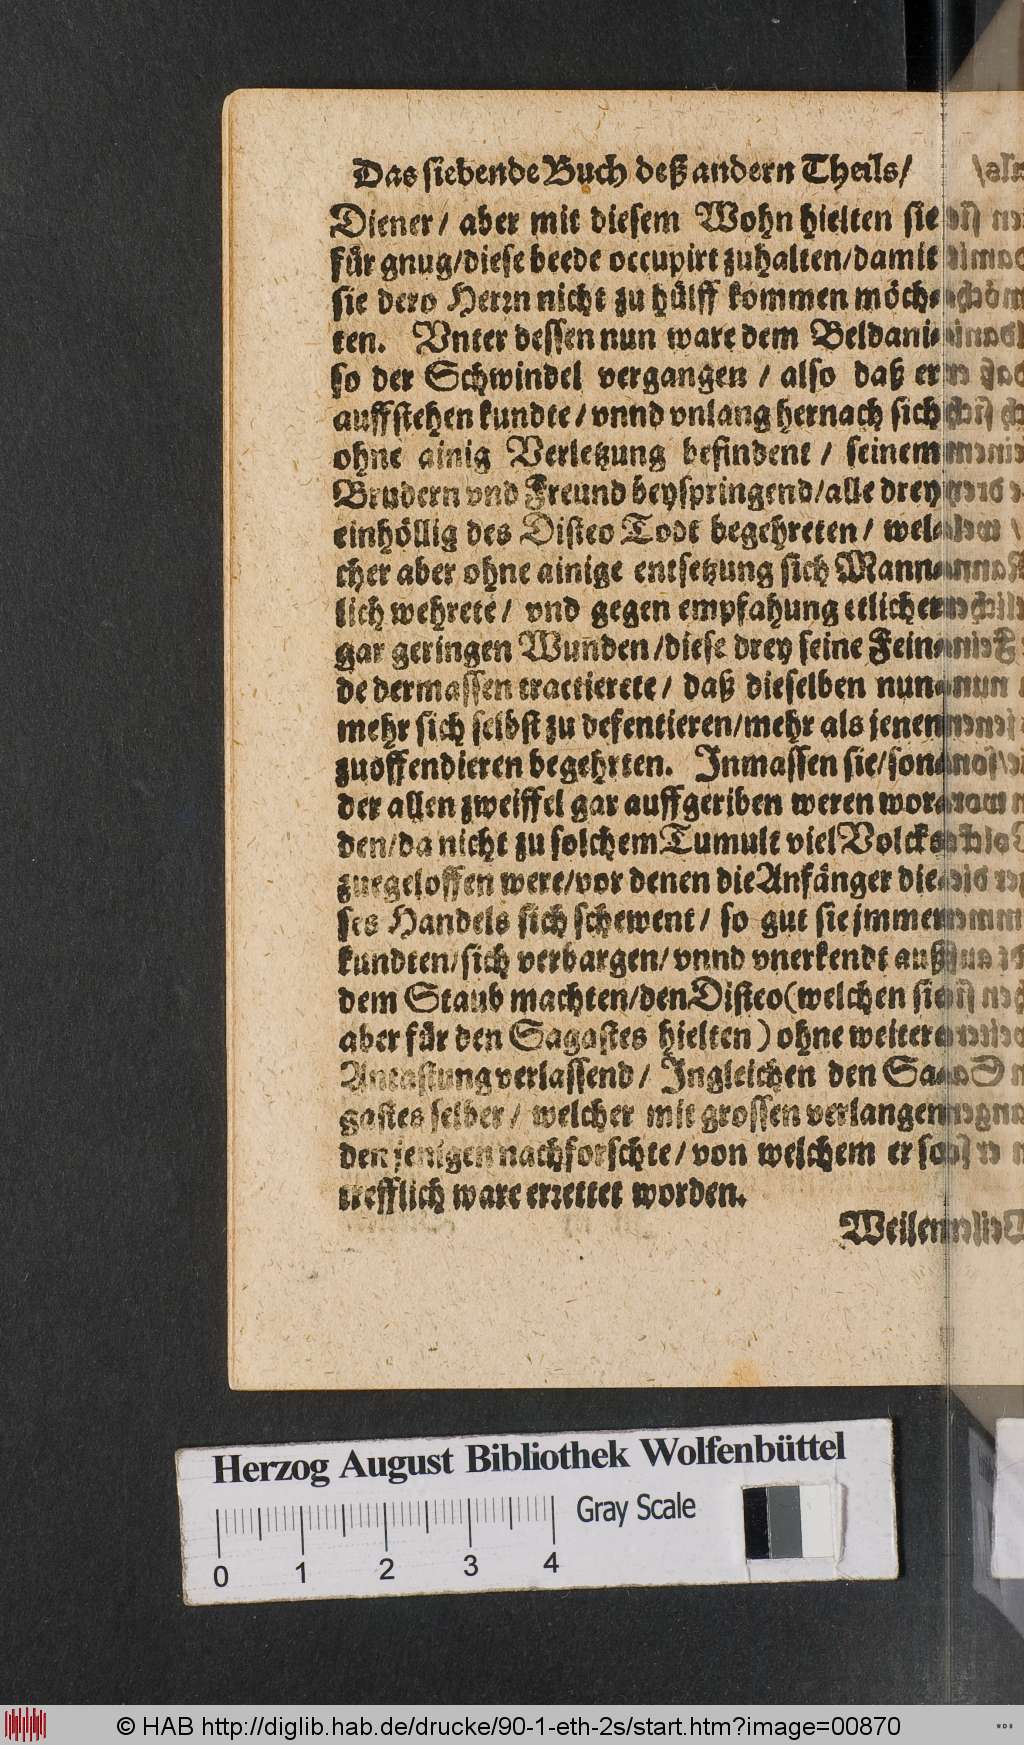 Das siebende Buch deß andern Theils/
Diener/ aber mit diesem Wohn hielten sie
für gnug/diese beede occupirt zuhalten/damit
sie dero Herrn nicht zu hülff kommen möch-
ten. Vnter dessen nun ware dem Beldani
so der Schwindel vergangen / also daß er
auffstehen kundte/ vnnd vnlang hernach sich
ohne ainig Verletzung befindent / seinem
Brudern vnd Freund beyspringend/alle drey
einhöllig des Disteo Todt begehreten/ wel-
cher aber ohne ainige entsetzung sich Mann-
lich wehrete/ vnd gegen empfahung etlicher
gar geringen Wunden/diese drey seine Fein-
de dermassen tractierete/ daß dieselben nun
mehr sich selbst zu defentieren/mehr als jenen
zuoffendieren begehrten. Inmassen sie/son-
der allen zweiffel gar auffgeriben weren wor-
den/da nicht zu solchem Tumult viel Volcks
zuegeloffen were/vor denen die Anfänger die-
ses Handels sich schewent/ so gut sie jmmer
kundten/sich verbargen/ vnnd vnerkendt auß
dem Staub machten/den Disteo(welchen sie
aber für den Sagastes hielten) ohne weitere
Antastung verlassend/ Ingleichen den Sa-
gastes selber/ welcher mit grossen verlangen
den jenigen nachforschte/ von welchem er so
trefflich ware errettet worden.
Weilen
Herzog August Bibliothek Wolfenbüttel
Gray Scale
0 1 2 3 4
© HAB http://diglib.hab.de/drucke/90-1-eth-2s/start.htm?image=00870